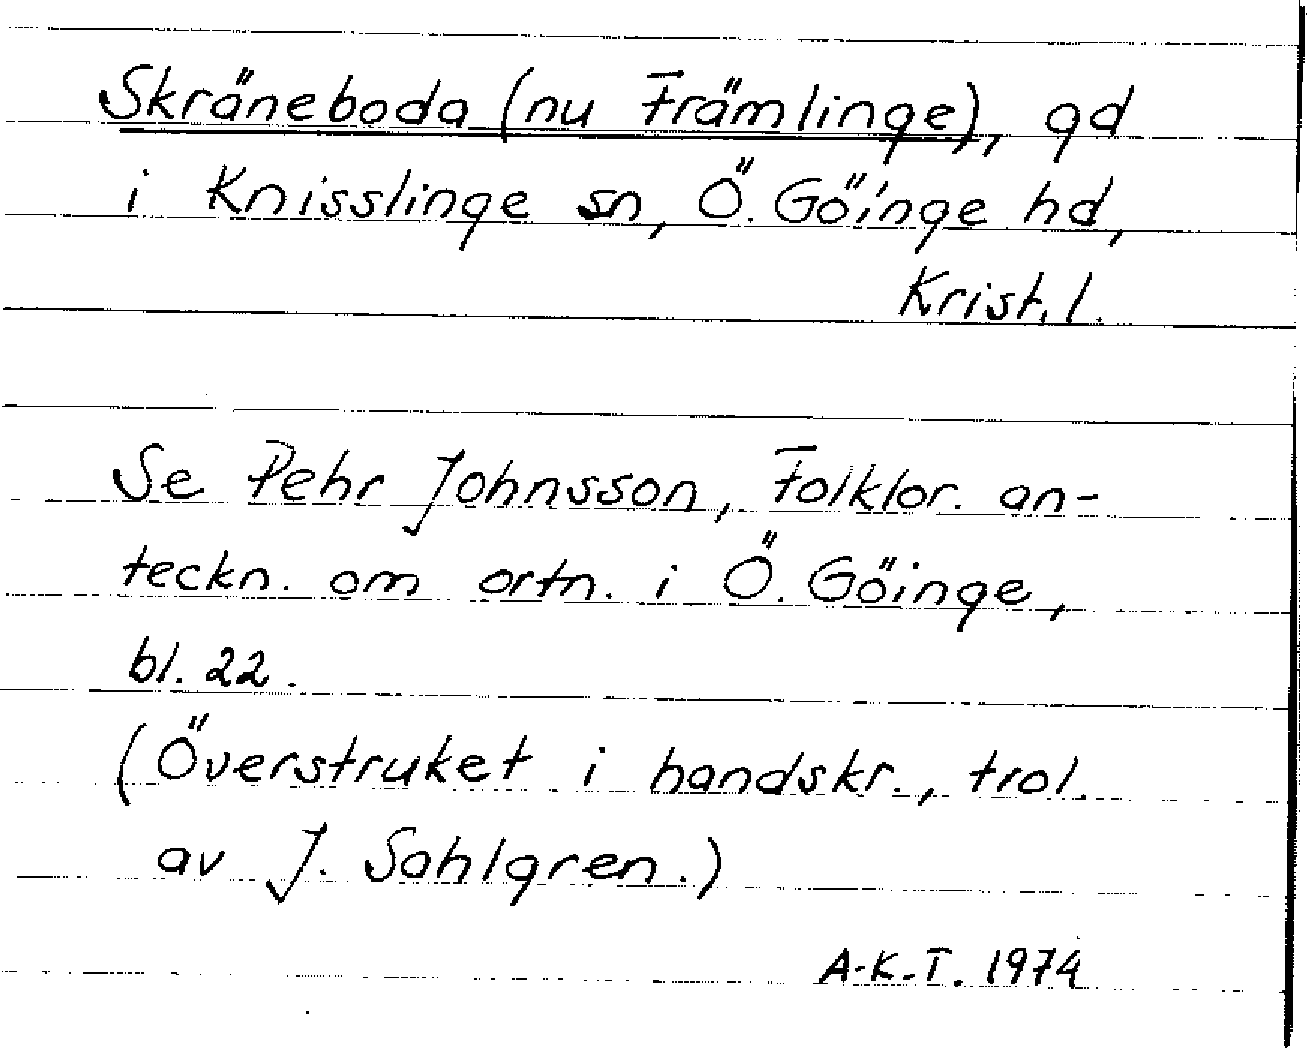 Skräneboda (nu Främlinge), gd
i Knisslinge sn, Ö. Göinge hd,
Krist. l.
Se Pehr Johnsson, Folklor. an-
teckn. om ortn. i Ö. Göinge,
bl. 22.
(Överstruket i handskr., trol.
av J. Sahlgren.)
A-K-T. 1974